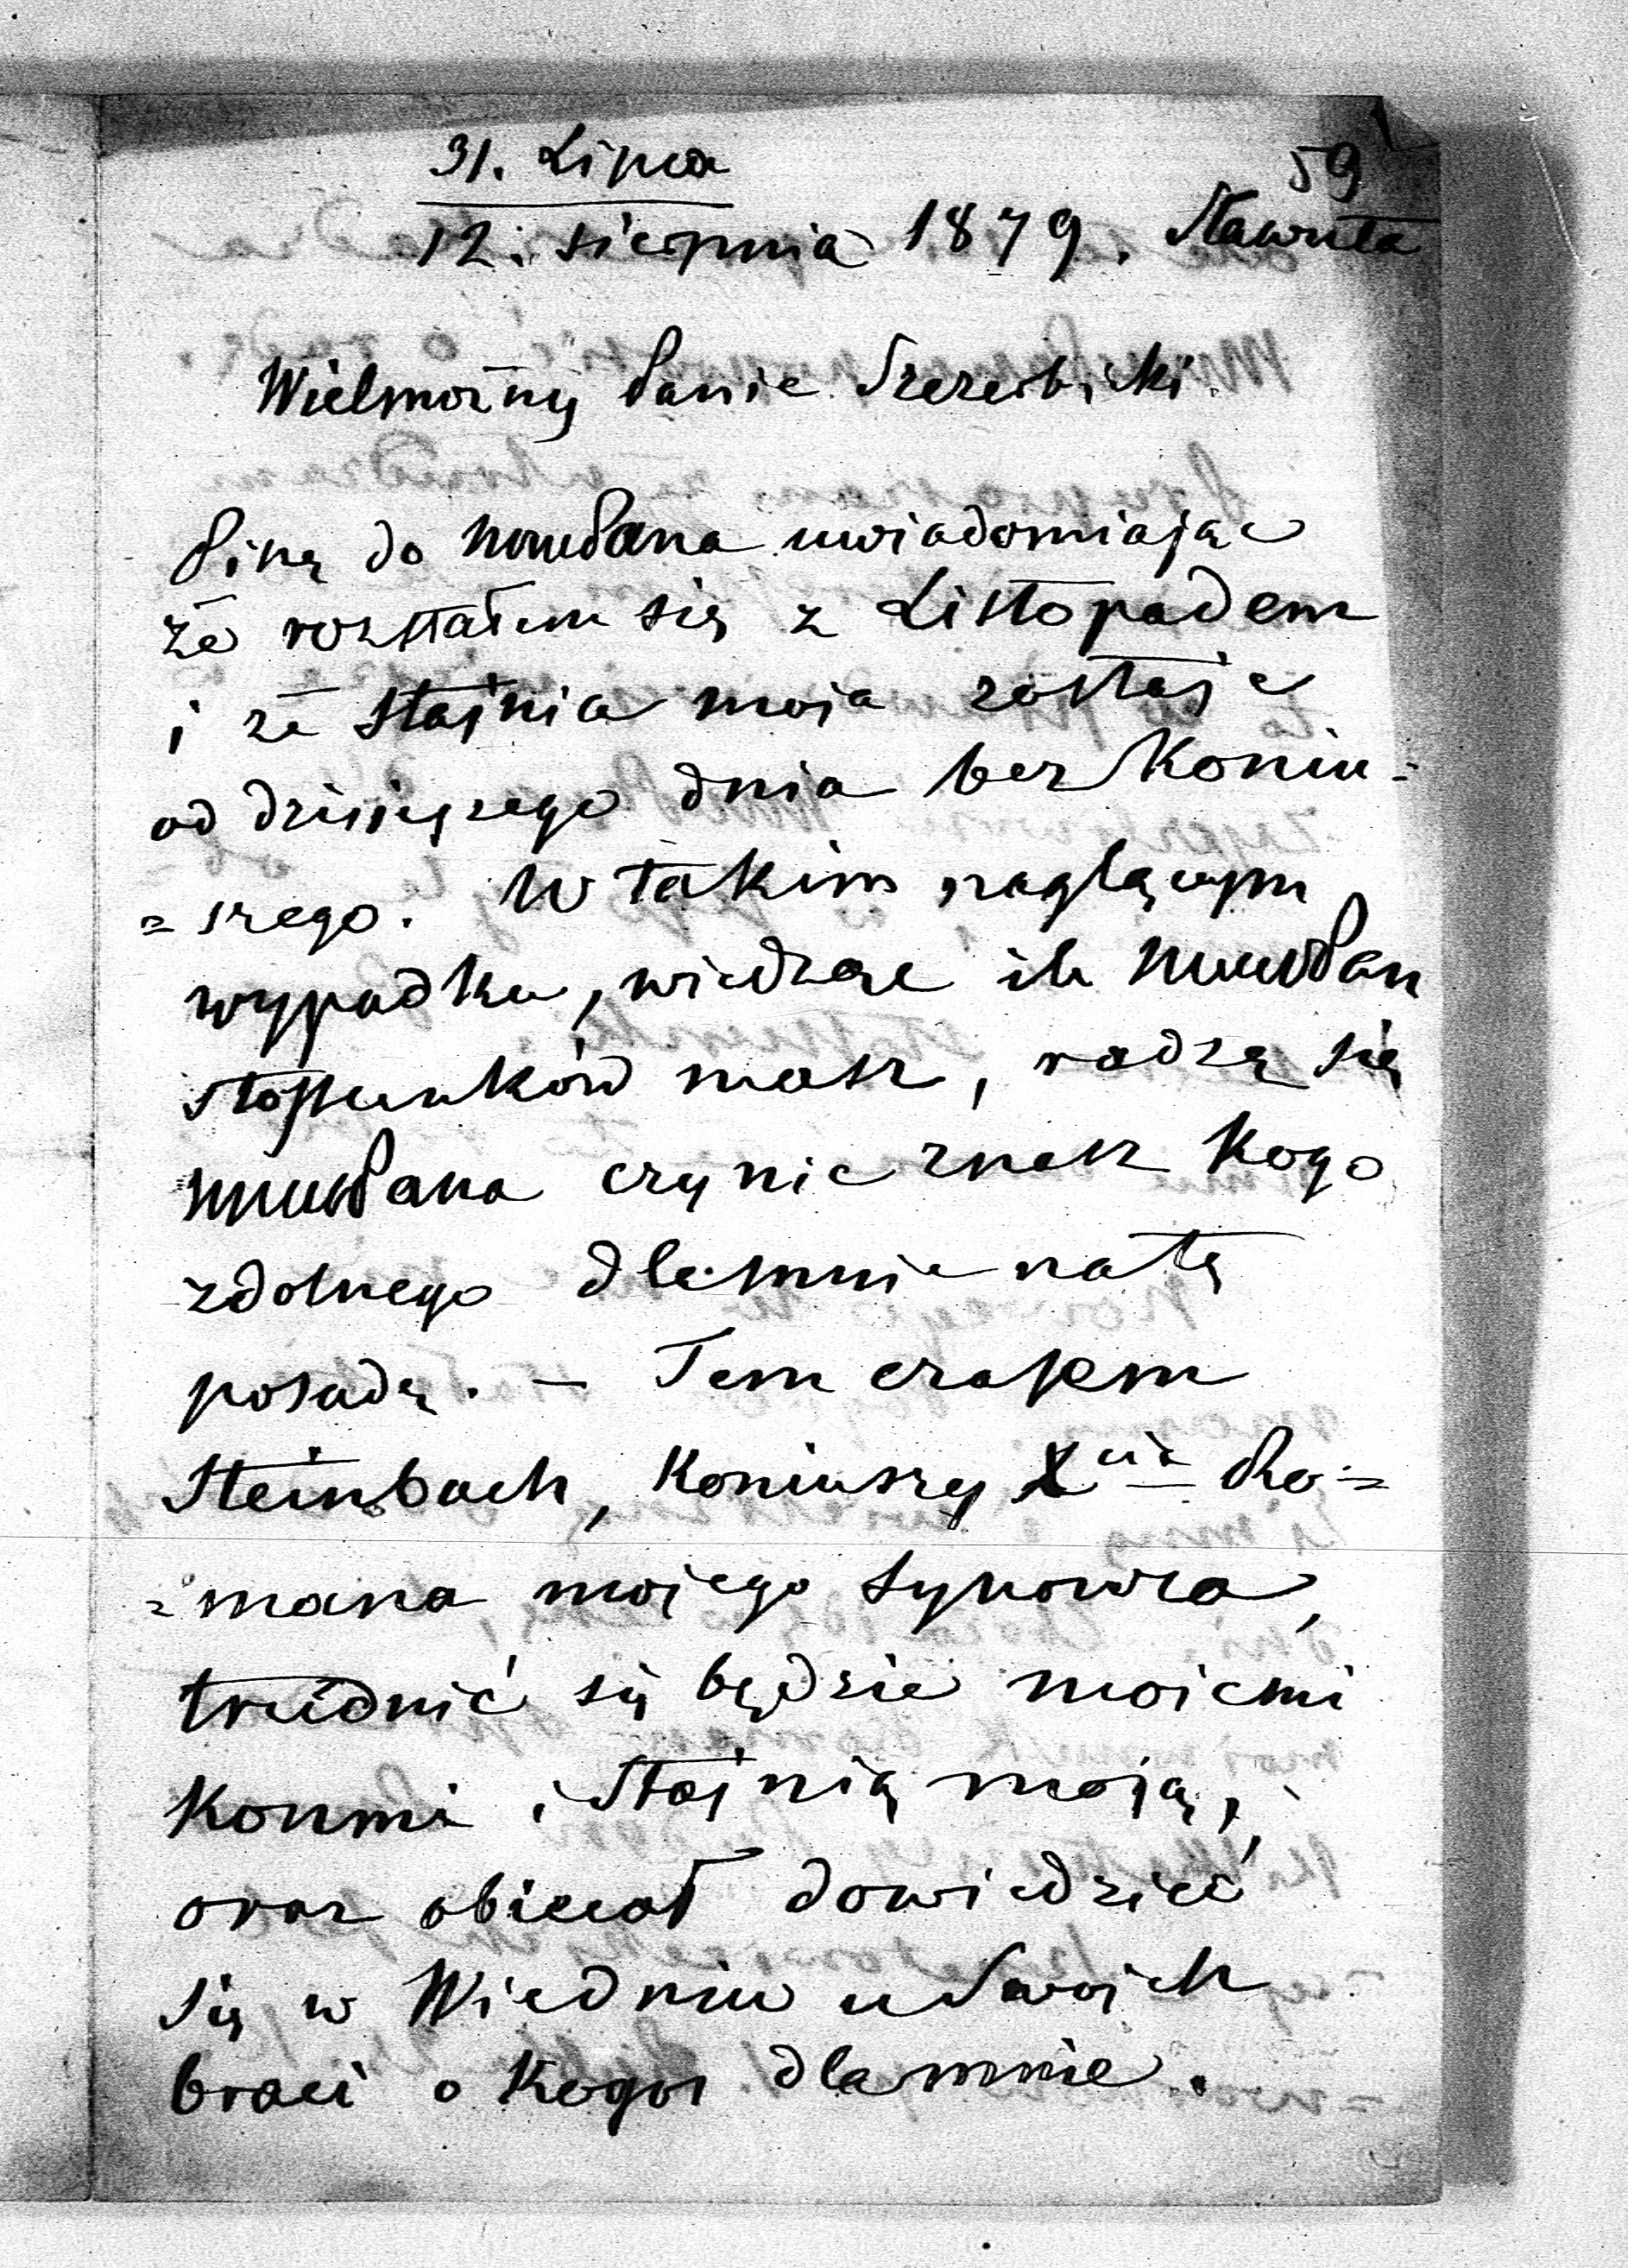 59
31. Lipca
12. sierpnia 1879. Sławuta
Wielmożny Panie Szczerbicki.
Piszę do WPana uwiadomiając
że rozstałem się z Listopadem
i że stajnia moja zostaje
od dzisiejszego dnia bez Koniu=
=szego. W takim naglącym
wypadku, wiedząc ile WPan
stosunków masz, radzę się
WPana czy nie znasz Kogo
zdolnego dla mnie na tę
posadę. — Tem czasem
Steinbach, Koniuszy Xcia Ro=
=mana mojego synowca,
trudnić się będzie moiemi
Końmi i Stajnią moją,
oraz obiecał dowiedzieć
się w Wiedniu u Swoich
braci o Kogoś dla mnie.